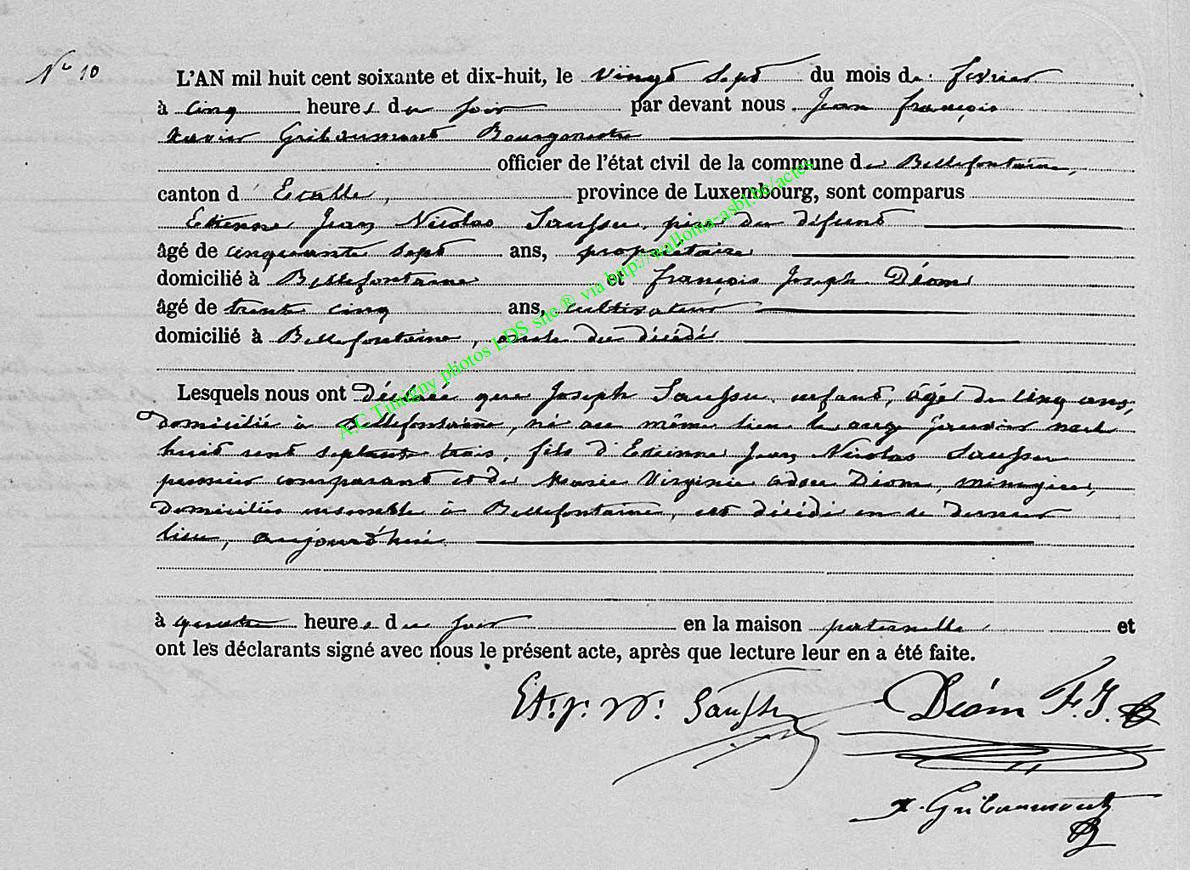 N° 10
L'AN mil huit cent soixante et dix-huit, le vingt sept du mois de fevrier
à cinq heures du soir par devant nous Jean françois
Xavier Gribaumont Bourgmestre
officier de l'état civil de la commune de Bellefontaine,
canton d'Etalle, province de Luxembourg, sont comparus
Etienne Jean Nicolas Saussu, père du défunt
âgé de cinquante sept ans, propriétaire
domicilié à Bellefontaine et françois Joseph Déom
âgé de trente cinq ans, cultivateur
domicilié à Bellefontaine, oncle du décédé
Lesquels nous ont Déclaré que Joseph Saussu, enfant, âgé de cinq ans,
domicilié à Bellefontaine, né au même lieu le onze janvier mil
huit cent septante trois, fils d'Etienne Jean Nicolas Saussu
premier comparant et de Marie Virginie Déom, ménagère,
domiciliés ensemble à Bellefontaine, est décédé en ce dernier
lieu, aujourd'hui
à quatre heures du soir en la maison paternelle et
ont les déclarants signé avec nous le présent acte, après que lecture leur en a été faite.
Et. J. N. Saussu Déom F. J.
X. Gribaumont
A.C Tintigny photos LDS site ® via http://wallonia-asbl.be/actes